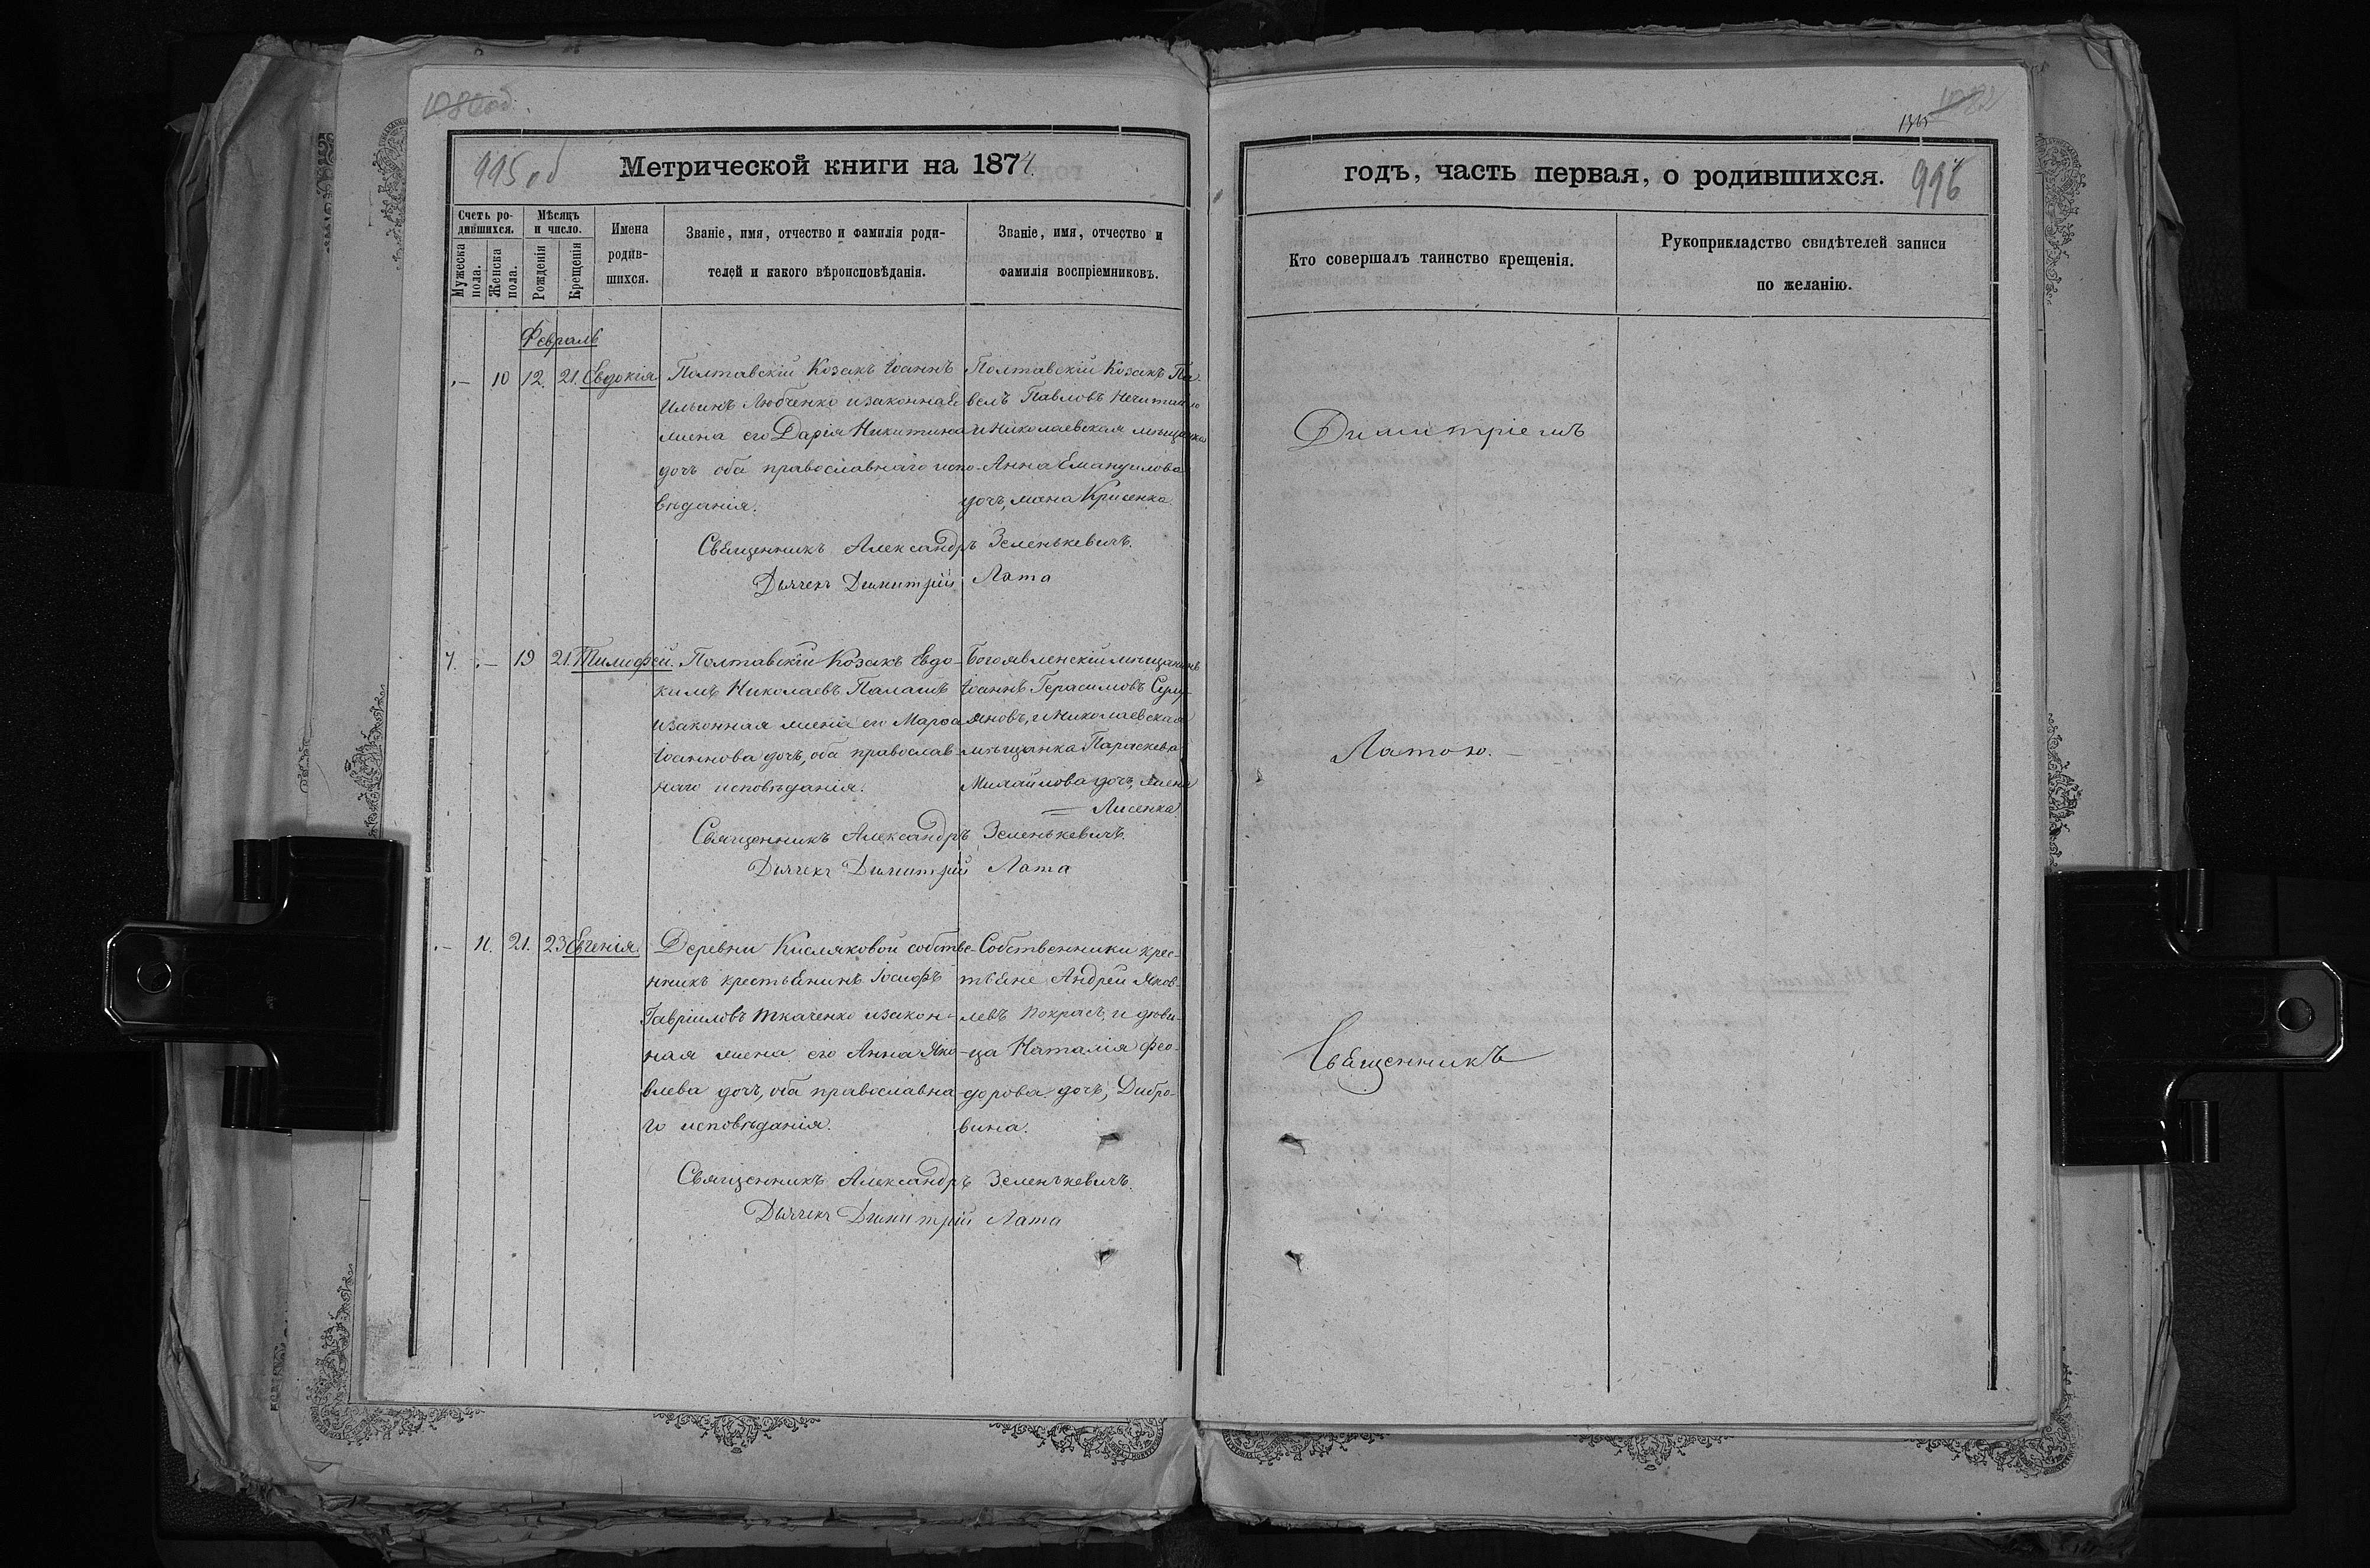 995 об
Метрической книги на 1874.
Счетъ ро-
дившихся.
Мужеска пола.
Женска пола.
Мѣсяцъ
и число.
Рожденія
Крещенія
Имена
родив-
шихся.
Званіе, имя, отчество и фамилія роди-
телей и какого вѣроисповѣданія.
Званіе, имя, отчество и
фамилія воспріемниковъ.
Февраль
.– 10 12. 21. Евдокія
Полтавскій Козакъ Іоаннъ
Ильинъ Любченко и законная
жена его Дарія Никитина
дочь оба православнаго испо-
вѣданія.
Полтавскій Козакъ Па-
велъ Павловъ Нечитайло
и Николаевская мѣщанка
Анна Емануилова
дочь, жена Крисенка
Священникъ Александръ Зеленькевичъ.
Дьячекъ Димитрій Лата
7. .– 19 21. Тимофей.
Полтавскій Козакъ Евдо-
кимъ Николаевъ Палашъ
и законная жена его Марѳа
Іоаннова дочь, оба православ-
наго исповѣданія.
Богоявленскій мѣщанинъ
Іоаннъ Герасимовъ
яновъ, и Николаевская
мѣщанка Параскева
Михайлова дочь, жена
Лисенка
Священникъ Александръ Зеленькевичъ.
Дьячекъ Димитрій Лата
.– 11. 21. 23 Евгенія.
Деревни Кисляковой собстве-
нникъ крестьянинъ Іосифъ
Гавріиловъ Ткаченко и закон-
ная жена его Анна Яко-
влева дочь, оба православна-
го исповѣданія.
Собственники крес-
тьяне Андрей Яков-
левъ Покрасъ, и дѣви-
ца Наталія Ѳео-
дорова дочь, Дибро-
вина.
Священникъ Александръ Зеленькевичъ.
Дьячекъ Димитрій Лата
годъ, часть первая, о родившихся.
996
Кто совершалъ таинство крещенія.
Рукоприкладство свидѣтелей записи
по желанію.
Димитріемъ
Латою.–
Священникъ